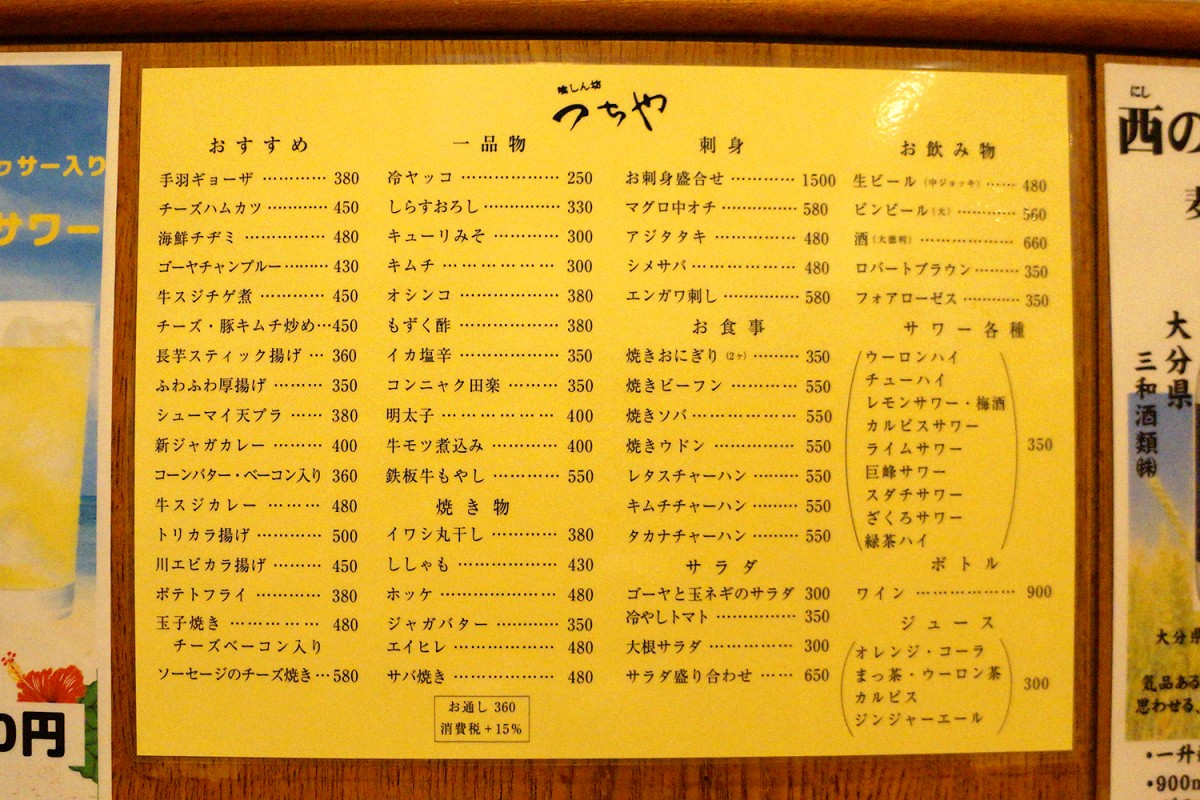 喰しん坊
つちや
おすすめ
手羽ギョーザ ………… 380
チーズハムカツ ……… 450
海鮮チヂミ ………… 480
ゴーヤチャンブルー……… 430
牛スジチゲ煮 ………… 450
チーズ・豚キムチ炒め…450
長芋スティック揚げ … 360
ふわふわ厚揚げ ……… 350
シューマイ天プラ …… 380
新ジャガカレー ……… 400
コーンバター・ベーコン入り 360
牛スジカレー ……… 480
トリカラ揚げ ………… 500
川エビカラ揚げ ……… 450
ポテトフライ ………… 380
玉子焼き ………… 480
チーズベーコン入り
ソーセージのチーズ焼き…580
一品物
冷ヤッコ ……………… 250
しらすおろし ………… 330
キューリみそ ………… 300
キムチ ……………… 300
オシンコ ……………… 380
もずく酢 ……………… 380
イカ塩辛 ……………… 350
コンニャク田楽 ……… 350
明太子 ……………… 400
牛モツ煮込み ………… 400
鉄板牛もやし ………… 550
焼き物
イワシ丸干し ………… 380
ししゃも ……………… 430
ホッケ ……………… 480
ジャガバター ………… 350
エイヒレ ……………… 480
サバ焼き ……………… 480
お通し 360
消費税+15%
刺身
お刺身盛合せ ………… 1500
マグロ中オチ ………… 580
アジタタキ …………… 480
シメサバ ……………… 480
エンガワ刺し ………… 580
お食事
焼きおにぎり (2ヶ) ……… 350
焼きビーフン ………… 550
焼きソバ ……………… 550
焼きウドン …………… 550
レタスチャーハン ……… 550
キムチチャーハン ……… 550
タカナチャーハン ……… 550
サラダ
ゴーヤと玉ネギのサラダ 300
冷やしトマト ………… 350
大根サラダ …………… 300
サラダ盛り合わせ …… 650
お飲み物
生ビール (中ジョッキ) …… 480
ビンビール(大) ………… 560
酒 (大徳利) ……………… 660
ロバートブラウン……… 350
フォアローゼス ……… 350
サワー各種
ウーロンハイ
チューハイ
レモンサワー・梅酒
カルピスサワー
ライムサワー
350
巨峰サワー
スダチサワー
ざくろサワー
緑茶ハイ
ボトル
ワイン ……………… 900
ジュース
オレンジ・コーラ
まっ茶・ウーロン茶
300
カルピス
ジンジャーエール
ッサー入り
サワー
0円
にし
西の
大分県
三和酒類㈱
大分県
気品ある
思わせる、
・一升
・900m